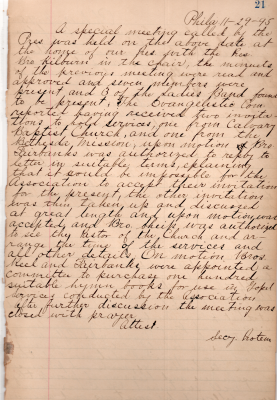 21
Phila 11-29-45
A special meeting called by the
Pres was held on the above date at
the home of our pres with the Pres
Bro Kilburn in the chair, the minutes
of the previous meeting were read and
approved and seven members were
present, and 3 of the Ladies Board found
to be present, The Evangelistic Com
reported having received two invita-
tions to hold services, one from Calvary
Baptist Church, and one from the
Bethesda Mission, upon motion Bro
Fairbanks was authorized to reply to
letter in suitable terms, explaining
that it would be impossible for the
Association to accept their invitation
at the present, the other invitation
was then taken up and discussed
at great length and upon motion was
accepted, and Bro. was authorized
to see the Pastor of the Church and ar-
range the time of the services and
all other details, On motion Bros.
and Fairbanks were appointed a
committee to purchase one hundred
suitable hymn books for use in Gospel
services conducted by the association
after further discussion the meeting was
closed with prayer
Attest
Secy